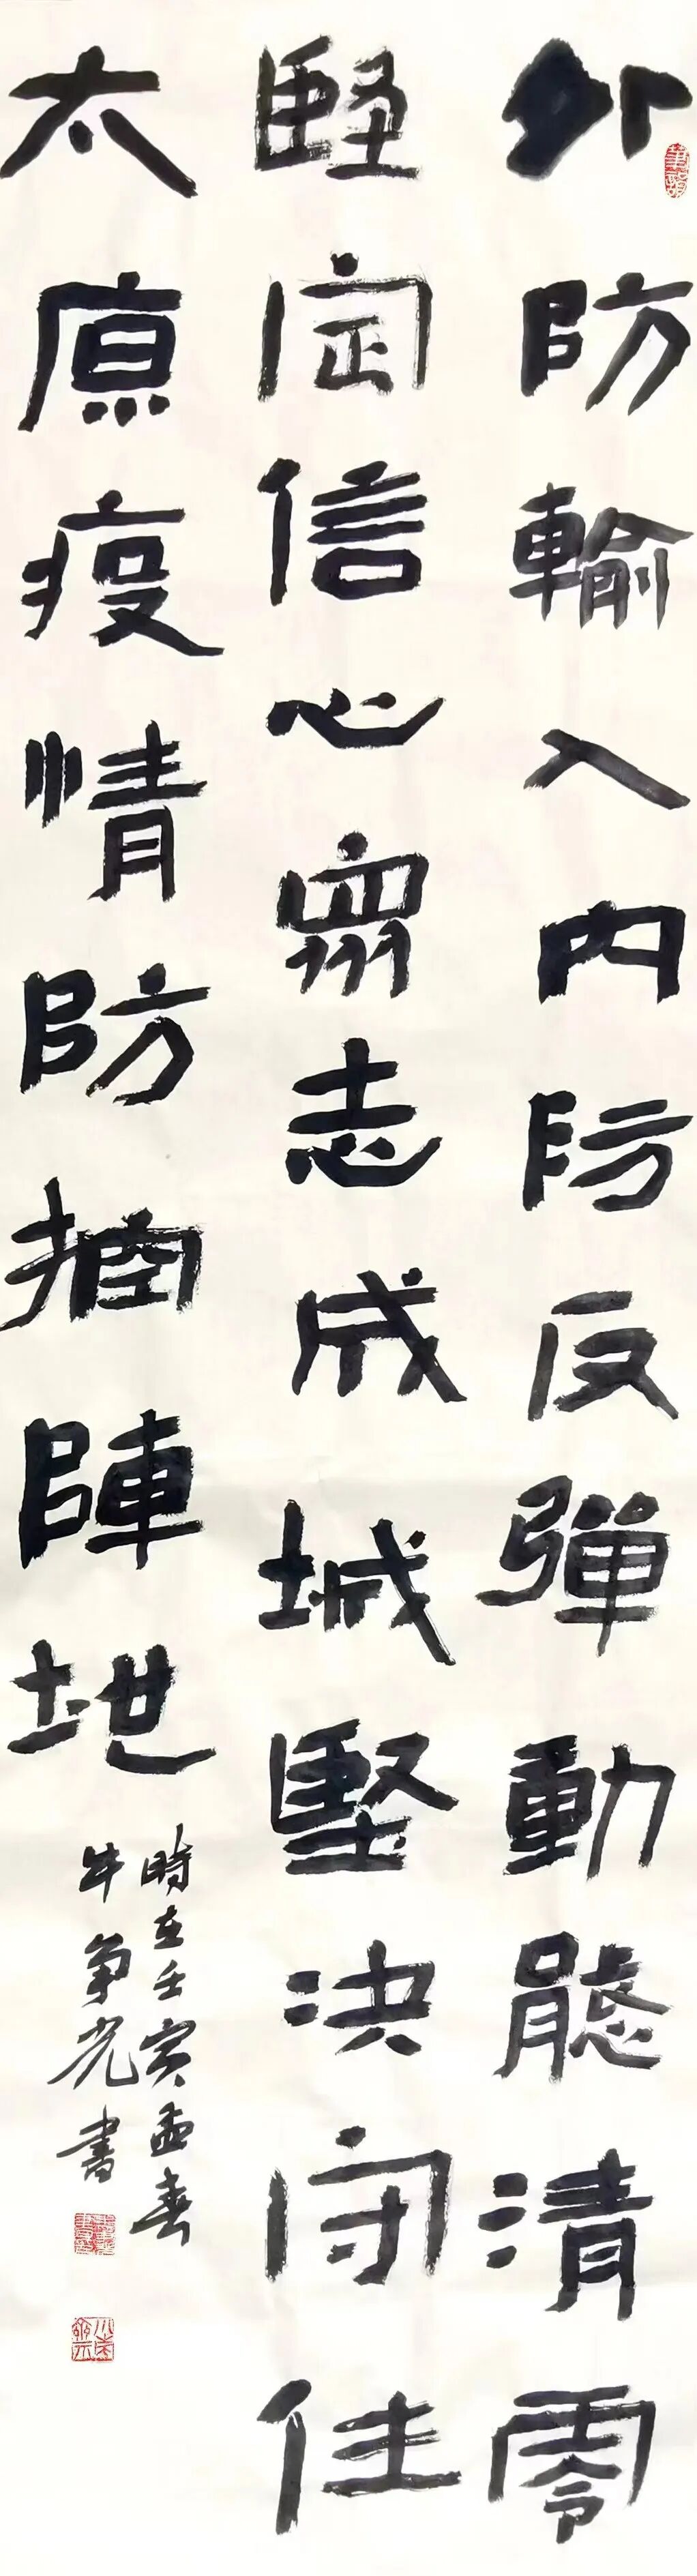 外防輸入内防反彈動態清零
堅定信心眾志成城堅決守住
太原疫情防控陣地
時在壬寅孟春
牛争光書